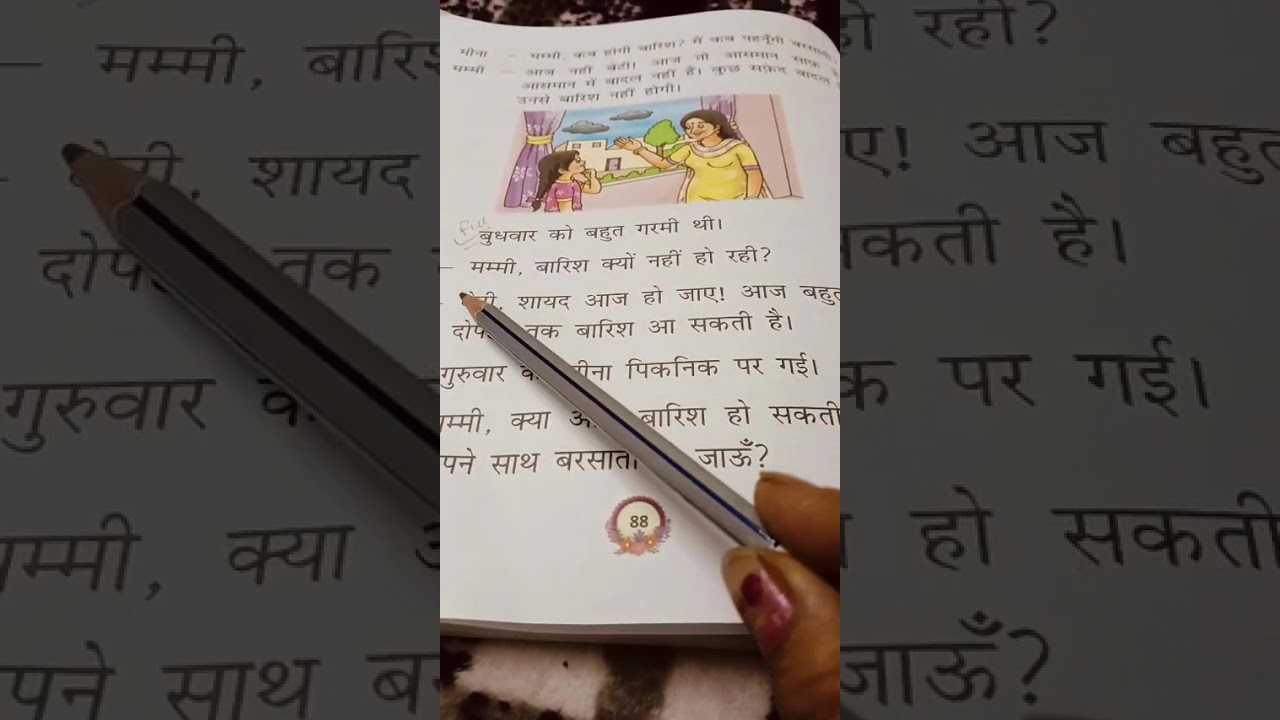 मीना – मम्मी, कब होगी बारिश? मैं कब पहनूँगी बरसाती
मम्मी – आज नहीं बेटी! आज तो आसमान साफ़
आसमान में बादल नहीं है। कुछ सफ़ेद बादल
उनसे बारिश नहीं होगी।
बुधवार को बहुत गरमी थी।
– मम्मी, बारिश क्यों नहीं हो रही?
– शायद आज हो जाए! आज बहुत
तक बारिश आ सकती है।
गुरुवार मीना पिकनिक पर गई।
मम्मी, क्या बारिश हो सकती
पने साथ जाऊँ?
88